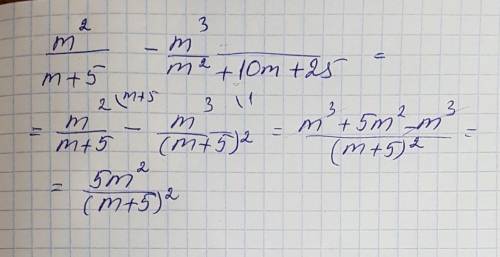 m²/(m+5) - m³/(m²+10m+25) =
= m²\m+5/(m+5) - m³\1/(m+5)² = (m³+5m²-m³)/(m+5)² =
= 5m²/(m+5)²